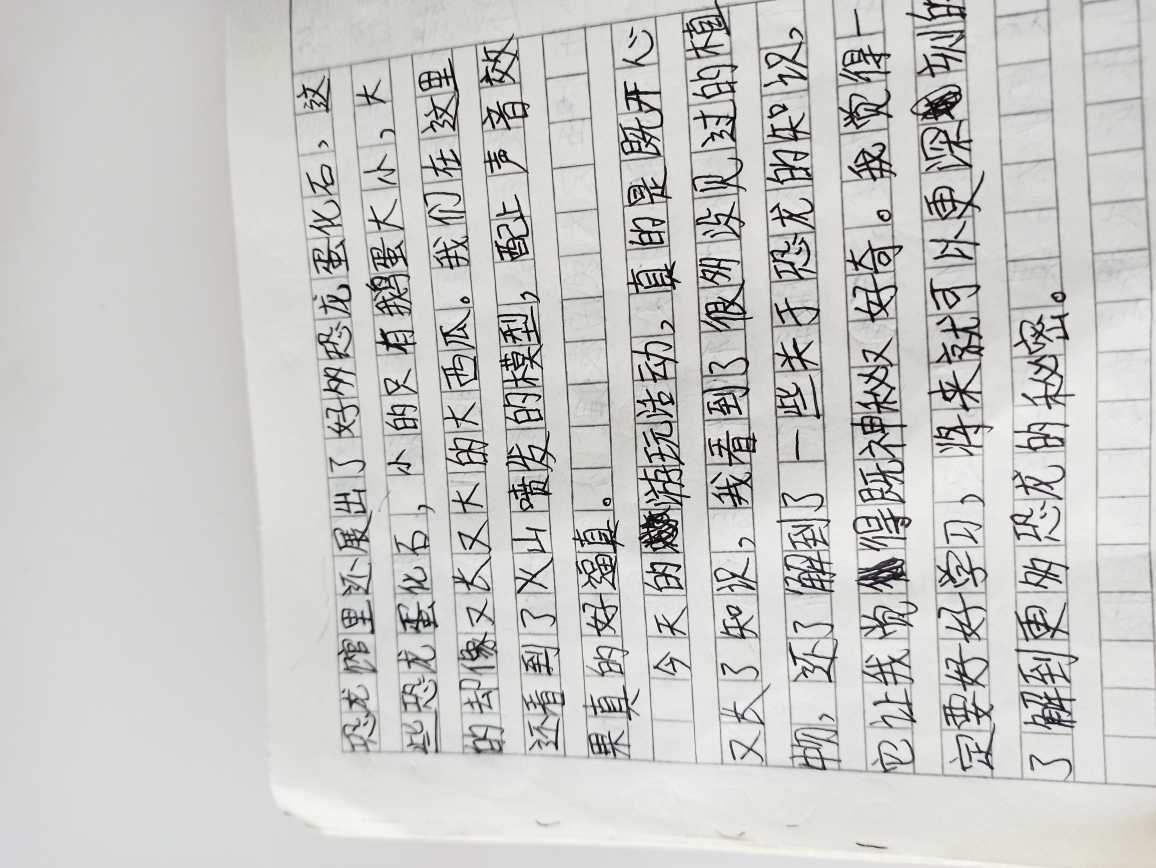 恐龙馆里还展出了好多恐龙蛋化石，这
些恐龙蛋化石，小的只有鹅蛋大小，大
的却像又长又大的大西瓜。我们在这里
还看到了火山喷发的模型，配上声音效
果真的好逼真。
今天的游玩活动，真的是既开心
又长了知识，我看到了很多没见过的植
物，还了解到了一些关于恐龙的知识，
它让我觉得既神秘又好奇。我觉得一
定要好好学习，将来就可以更深圳的
了解到更多恐龙的秘密。